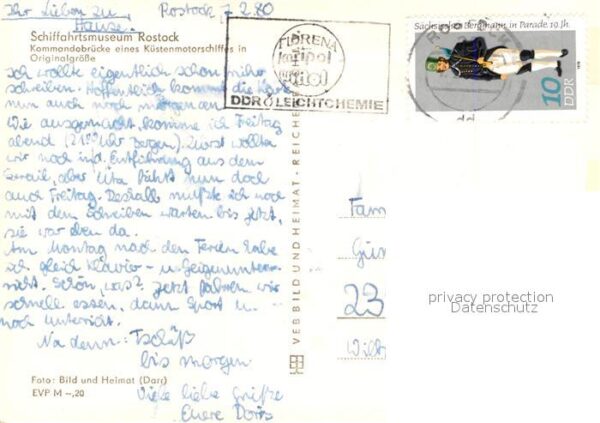 Ihr Lieben zu Hause. Rostock, 7.2.80
Schiffahrtsmuseum Rostock
Kommandobrücke eines Küstenmotorschiffes in
Originalgröße
Ich wollte eigentlich schon früher
schreiben. Hoffentlich kommt die Karte
nun auch noch morgen an.
Wie ausgemacht, komme ich Freitag
abend (21⁰⁰ Uhr Bergen). Zuerst wollten
wir noch in d. Entführung aus dem
Serail, aber Uta fährt nun doch
auch Freitag. Deshalb mußte ich noch
mit dem Schreiben warten bis jetzt,
sie war eben da.
Am Montag nach den Ferien habe
ich gleich Klavier- u. Geigenunter-
richt. Schön, was? Jetzt fahren wir
schnell essen, dann Sport u.
noch Unterricht.
Na denn: Tschüß
bis morgen
Viele liebe Grüße
Eure Doris
Foto: Bild und Heimat (Darr)
EVP M –,20
VEB BILD UND HEIMAT · REICHE
FLORENA
DDR LEICHTCHEMIE
Sächsischer Bergmann in Parade, 19. Jh.
10
DDR
1978
Fam
Gün
23
privacy protection
Datenschutz